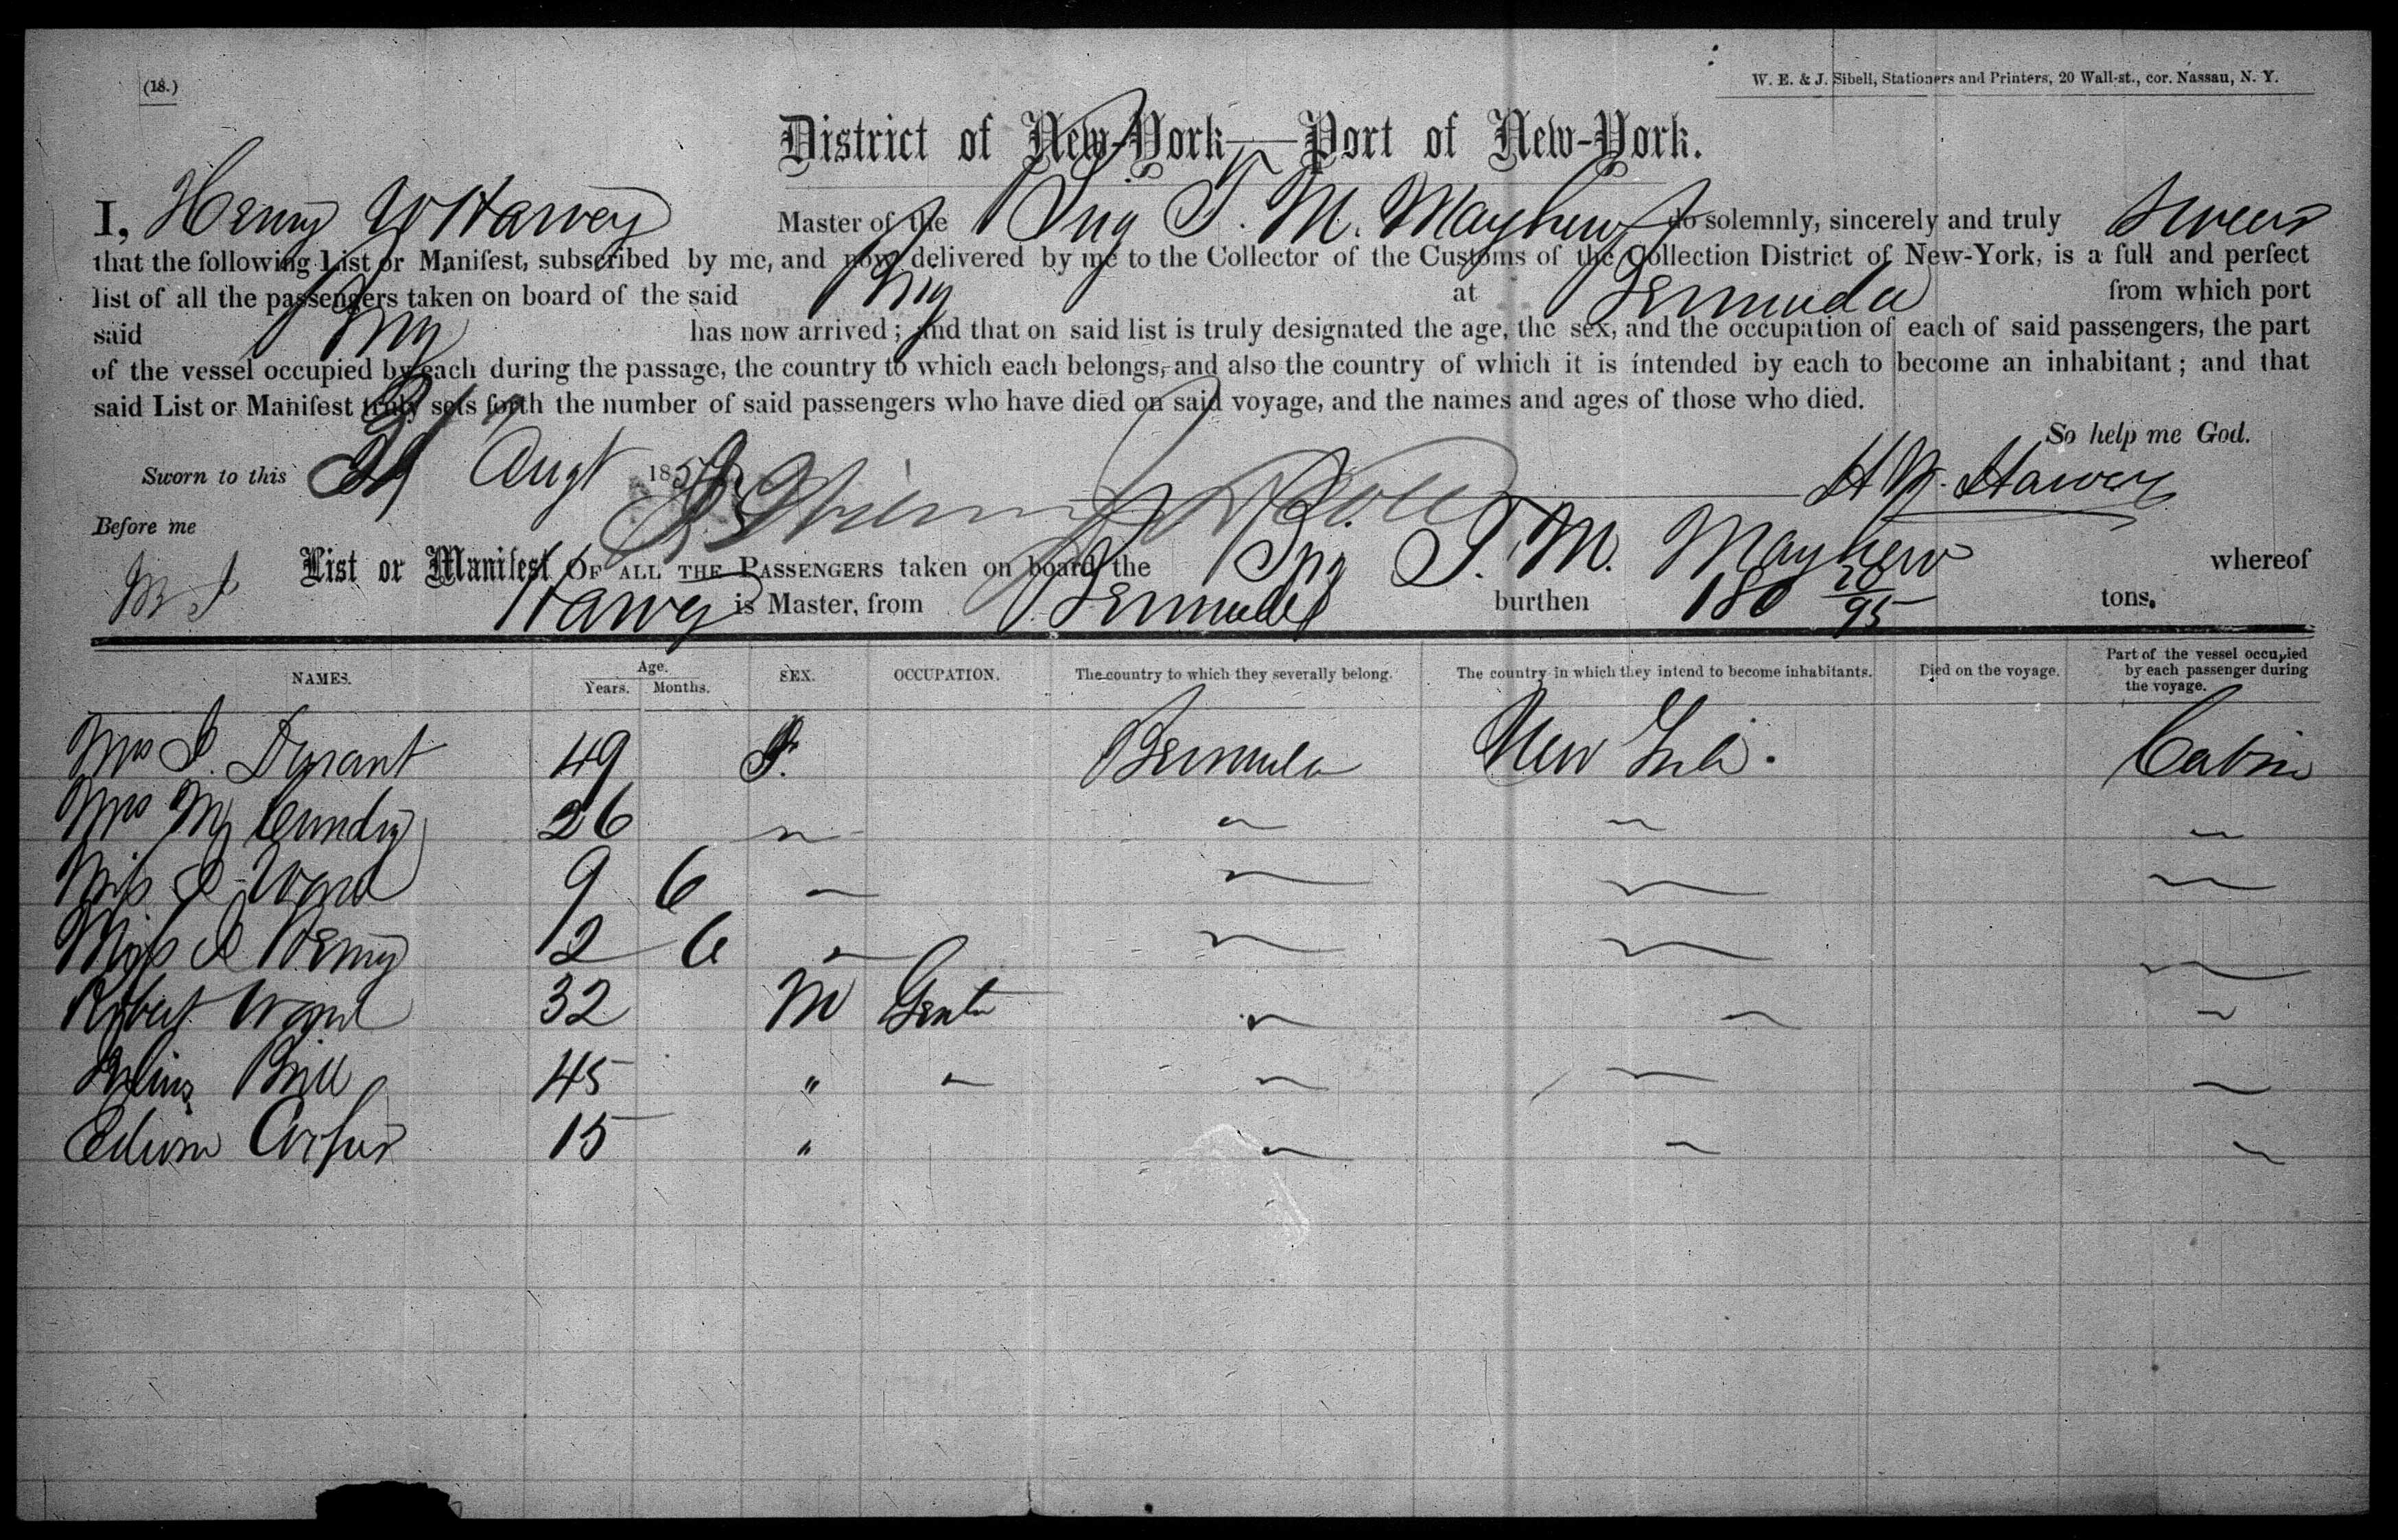 (18.)
W. E. & J. Sibell, Stationers and Printers, 20 Wall-st., cor. Nassau, N. Y.
District of New-York—Port of New-York.
I, Henry W Harvey Master of the Brig T. M. Mayhew do solemnly, sincerely and truly swear
that the following List or Manifest, subscribed by me, and now delivered by me to the Collector of the Customs of the Collection District of New-York, is a full and perfect
list of all the passengers taken on board of the said Brig at Bermuda from which port
said Brig has now arrived; and that on said list is truly designated the age, the sex, and the occupation of each of said passengers, the part
of the vessel occupied by each during the passage, the country to which each belongs, and also the country of which it is intended by each to become an inhabitant; and that
said List or Manifest truly sets forth the number of said passengers who have died on said voyage, and the names and ages of those who died.
So help me God.
Sworn to this Augt 185 H W. Harvey
Before me
List or Manifest OF ALL THE PASSENGERS taken on board the Brig T. M. Mayhew whereof
Harvey is Master, from Bermuda burthen 180 tons.
NAMES. Age. Years. Months. SEX. OCCUPATION. The country to which they severally belong. The country in which they intend to become inhabitants. Died on the voyage. Part of the vessel occupied by each passenger during the voyage.
Mrs Durant 49 F. Bermuda New Cabin
Mrs M Cundy 26 " " " "
Miss Ward 9 6 " " " "
Miss 2 6 " " " "
Robert Ward 32 M Gentn " " "
Brill 45 " " " " "
15 " " " "